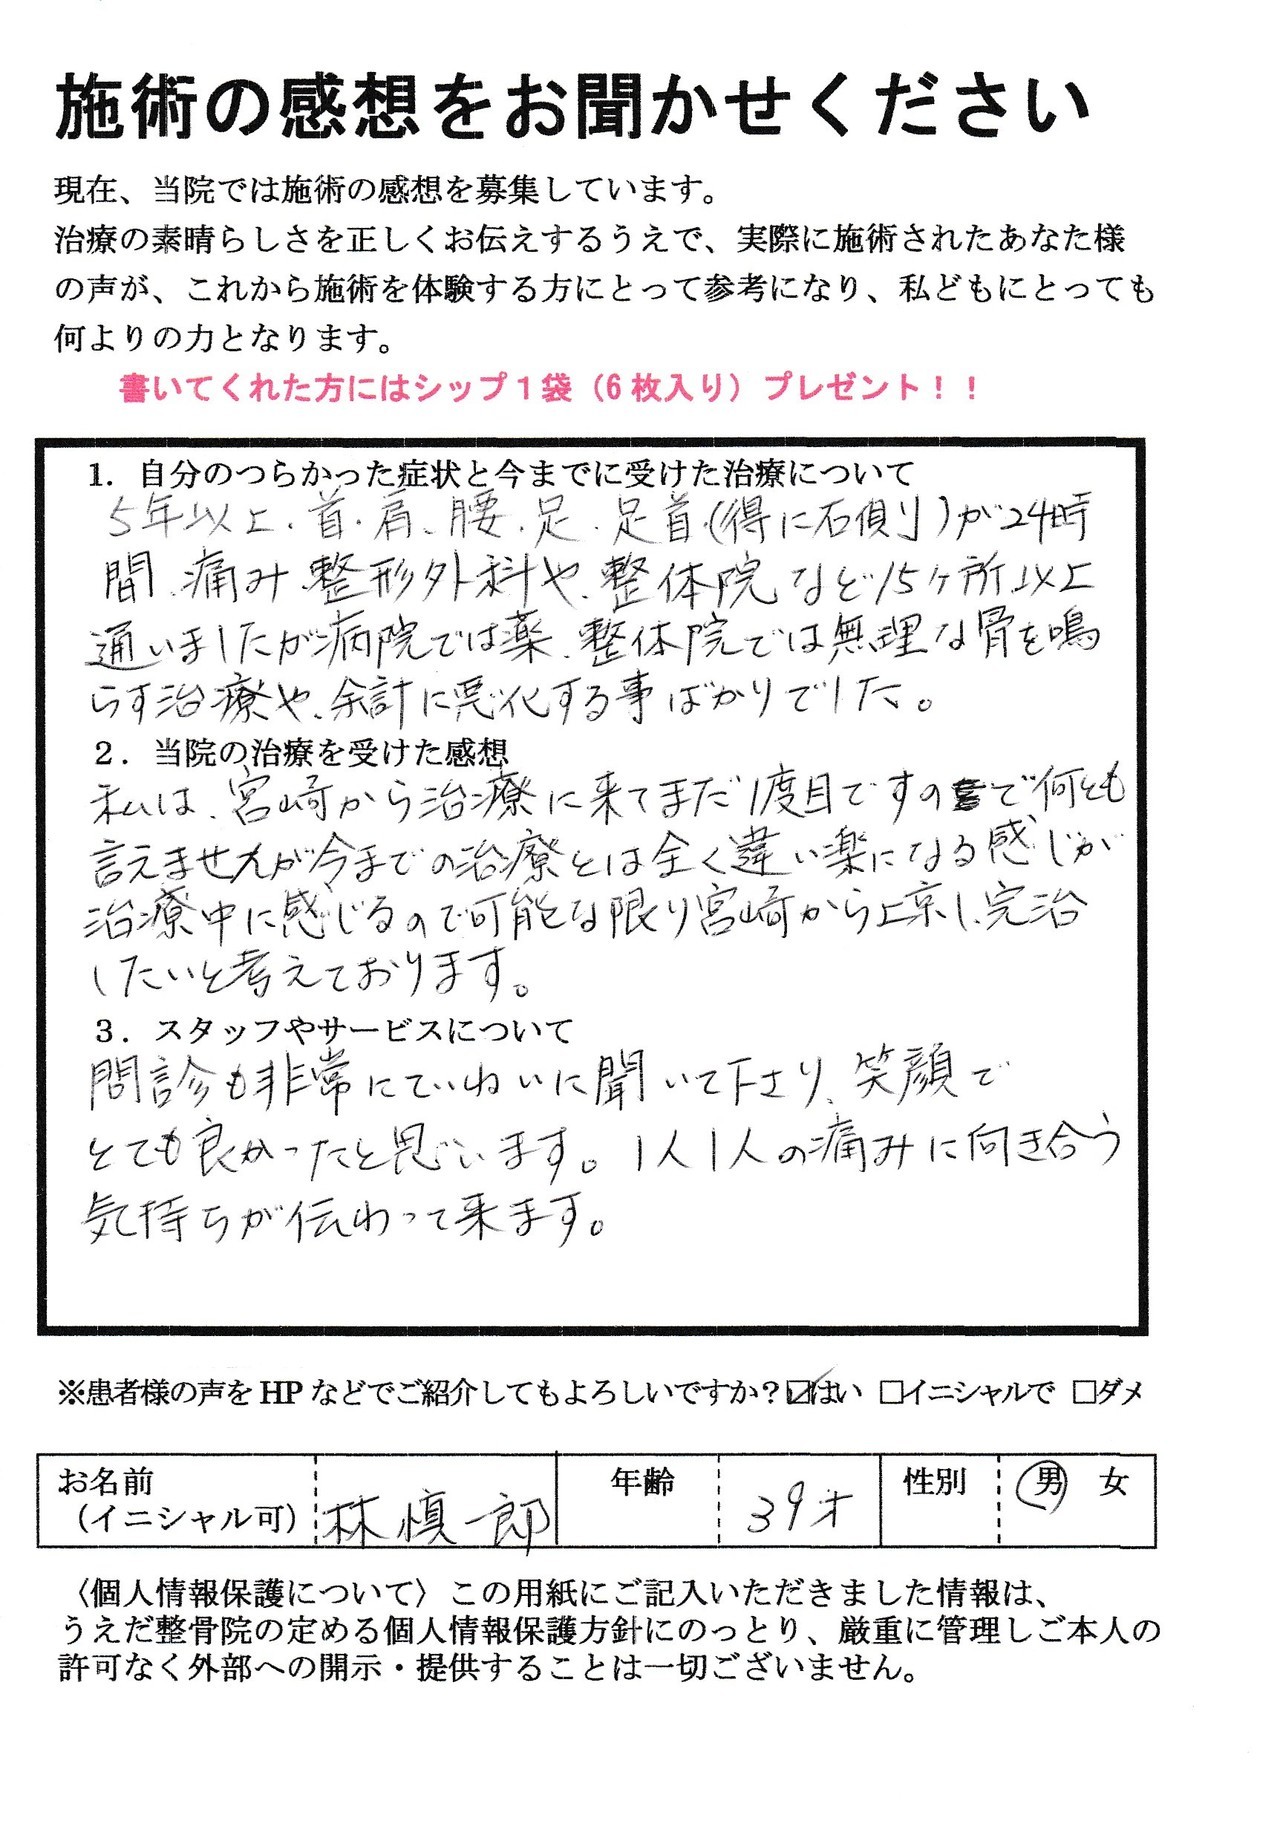 施術の感想をお聞かせください
現在、当院では施術の感想を募集しています。
治療の素晴らしさを正しくお伝えするうえで、実際に施術されたあなた様
の声が、これから施術を体験する方にとって参考になり、私どもにとっても
何よりの力となります。
書いてくれた方にはシップ1袋（6枚入り）プレゼント！！
1. 自分のつらかった症状と今までに受けた治療について
5年以上、首、肩、腰、足、足首(得に右側)が24時
間、痛み、整形外科や、整体院など15ヶ所以上
通いましたが病院では薬、整体院では無理な骨を鳴
らす治療や、余計に悪化する事ばかりでした。
2. 当院の治療を受けた感想
私は、宮崎から治療に来てまだ1度目ですので何とも
言えませんが今までの治療とは全く違い楽になる感じが
治療中に感じるので可能な限り宮崎から上京し、完治
したいと考えております。
3. スタッフやサービスについて
問診も非常にていねいに聞いて下さり、笑顔で
とても良かったと思います。1人1人の痛みに向き合う
気持ちが伝わって来ます。
※患者様の声をHPなどでご紹介してもよろしいですか？☑はい □イニシャルで □ダメ
お名前 年齢 性別 男 女
（イニシャル可） 林慎一郎 39才
〈個人情報保護について〉この用紙にご記入いただきました情報は、
うえだ整骨院の定める個人情報保護方針にのっとり、厳重に管理しご本人の
許可なく外部への開示・提供することは一切ございません。